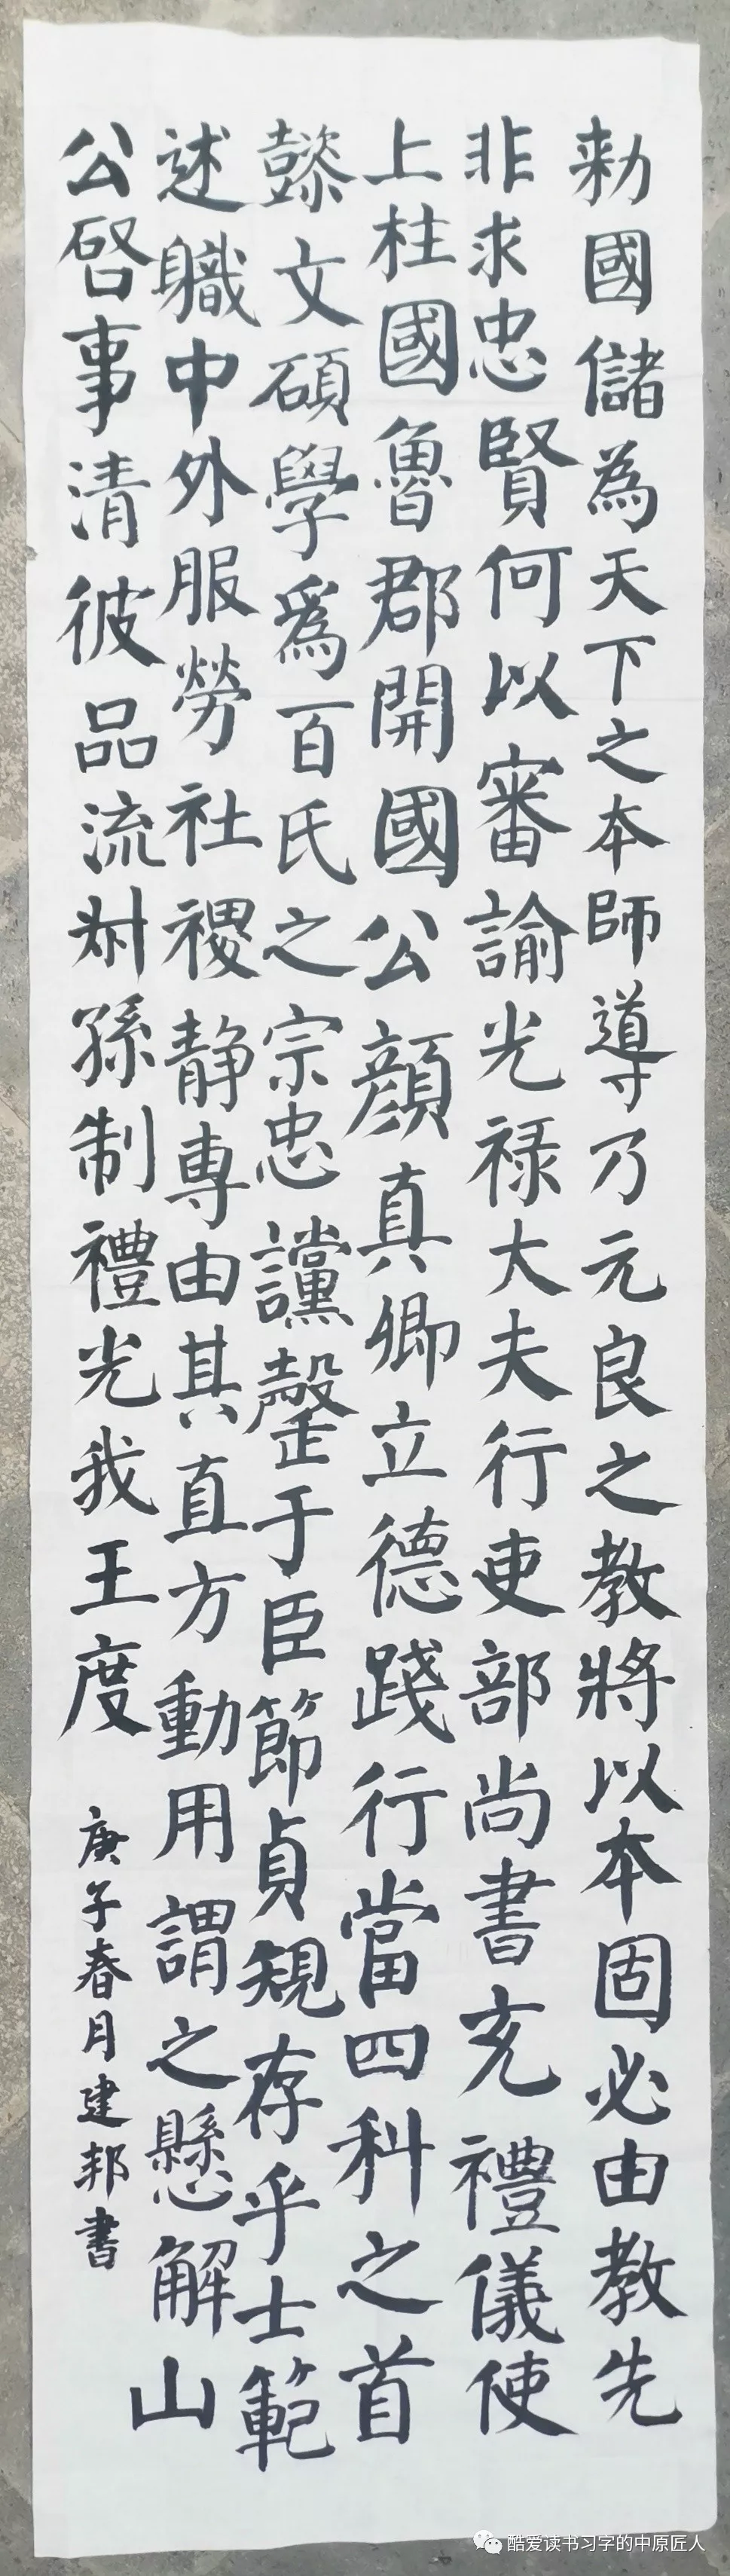 勑國儲為天下之本師導乃元良之教將以本固必由教先
非求忠賢何以審諭光禄大夫行吏部尚書充禮儀使
上柱國魯郡開國公顏真卿立德踐行當四科之首
懿文碩學爲百氏之宗忠讜罄于臣節貞規存乎士範
述職中外服勞社稷静專由其直方動用謂之懸解山
公啓事清彼品流叔孫制禮光我王度
庚子春月建邦書
酷爱读书习字的中原匠人